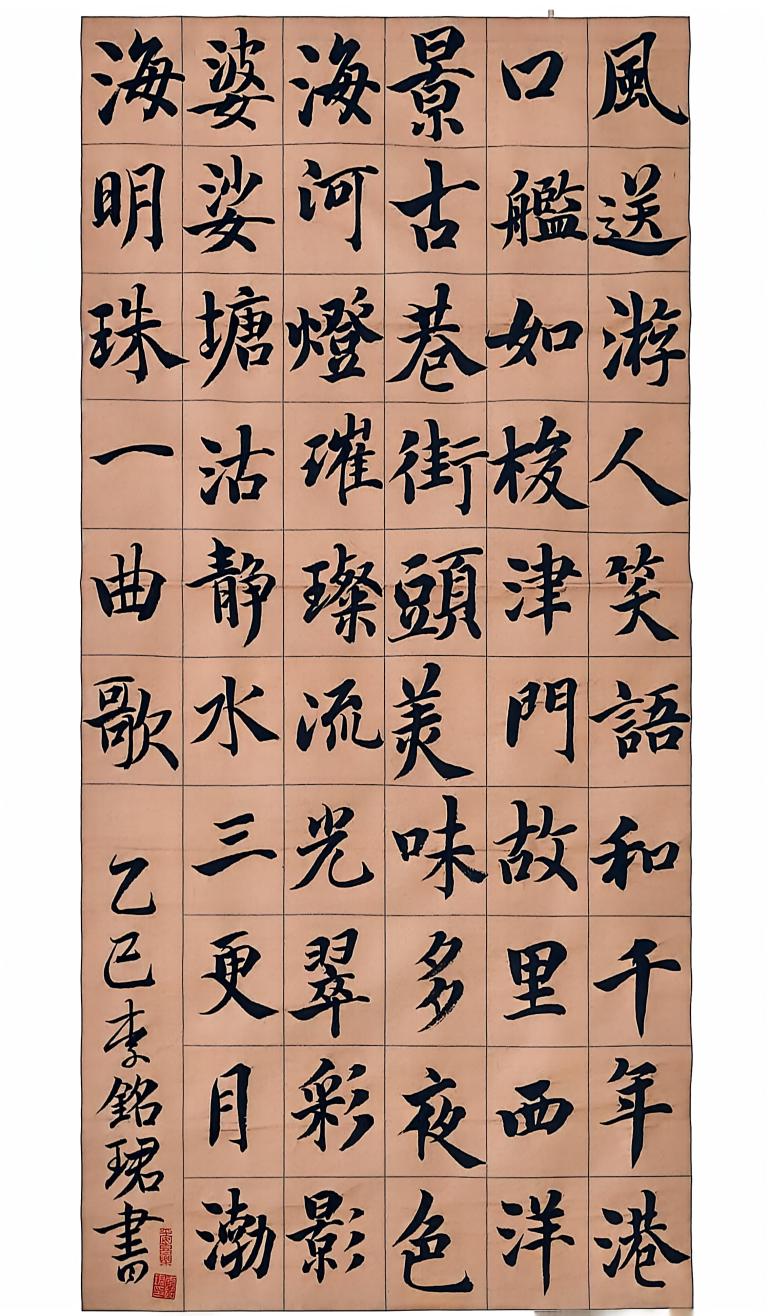 風送游人笑語和千年港
口艦如梭津門故里西洋
景古巷街頭美味多夜色
海河燈璀璨流光翠彩影
婆娑塘沽靜水三更月渤
海明珠一曲歌
乙巳李銘珺書